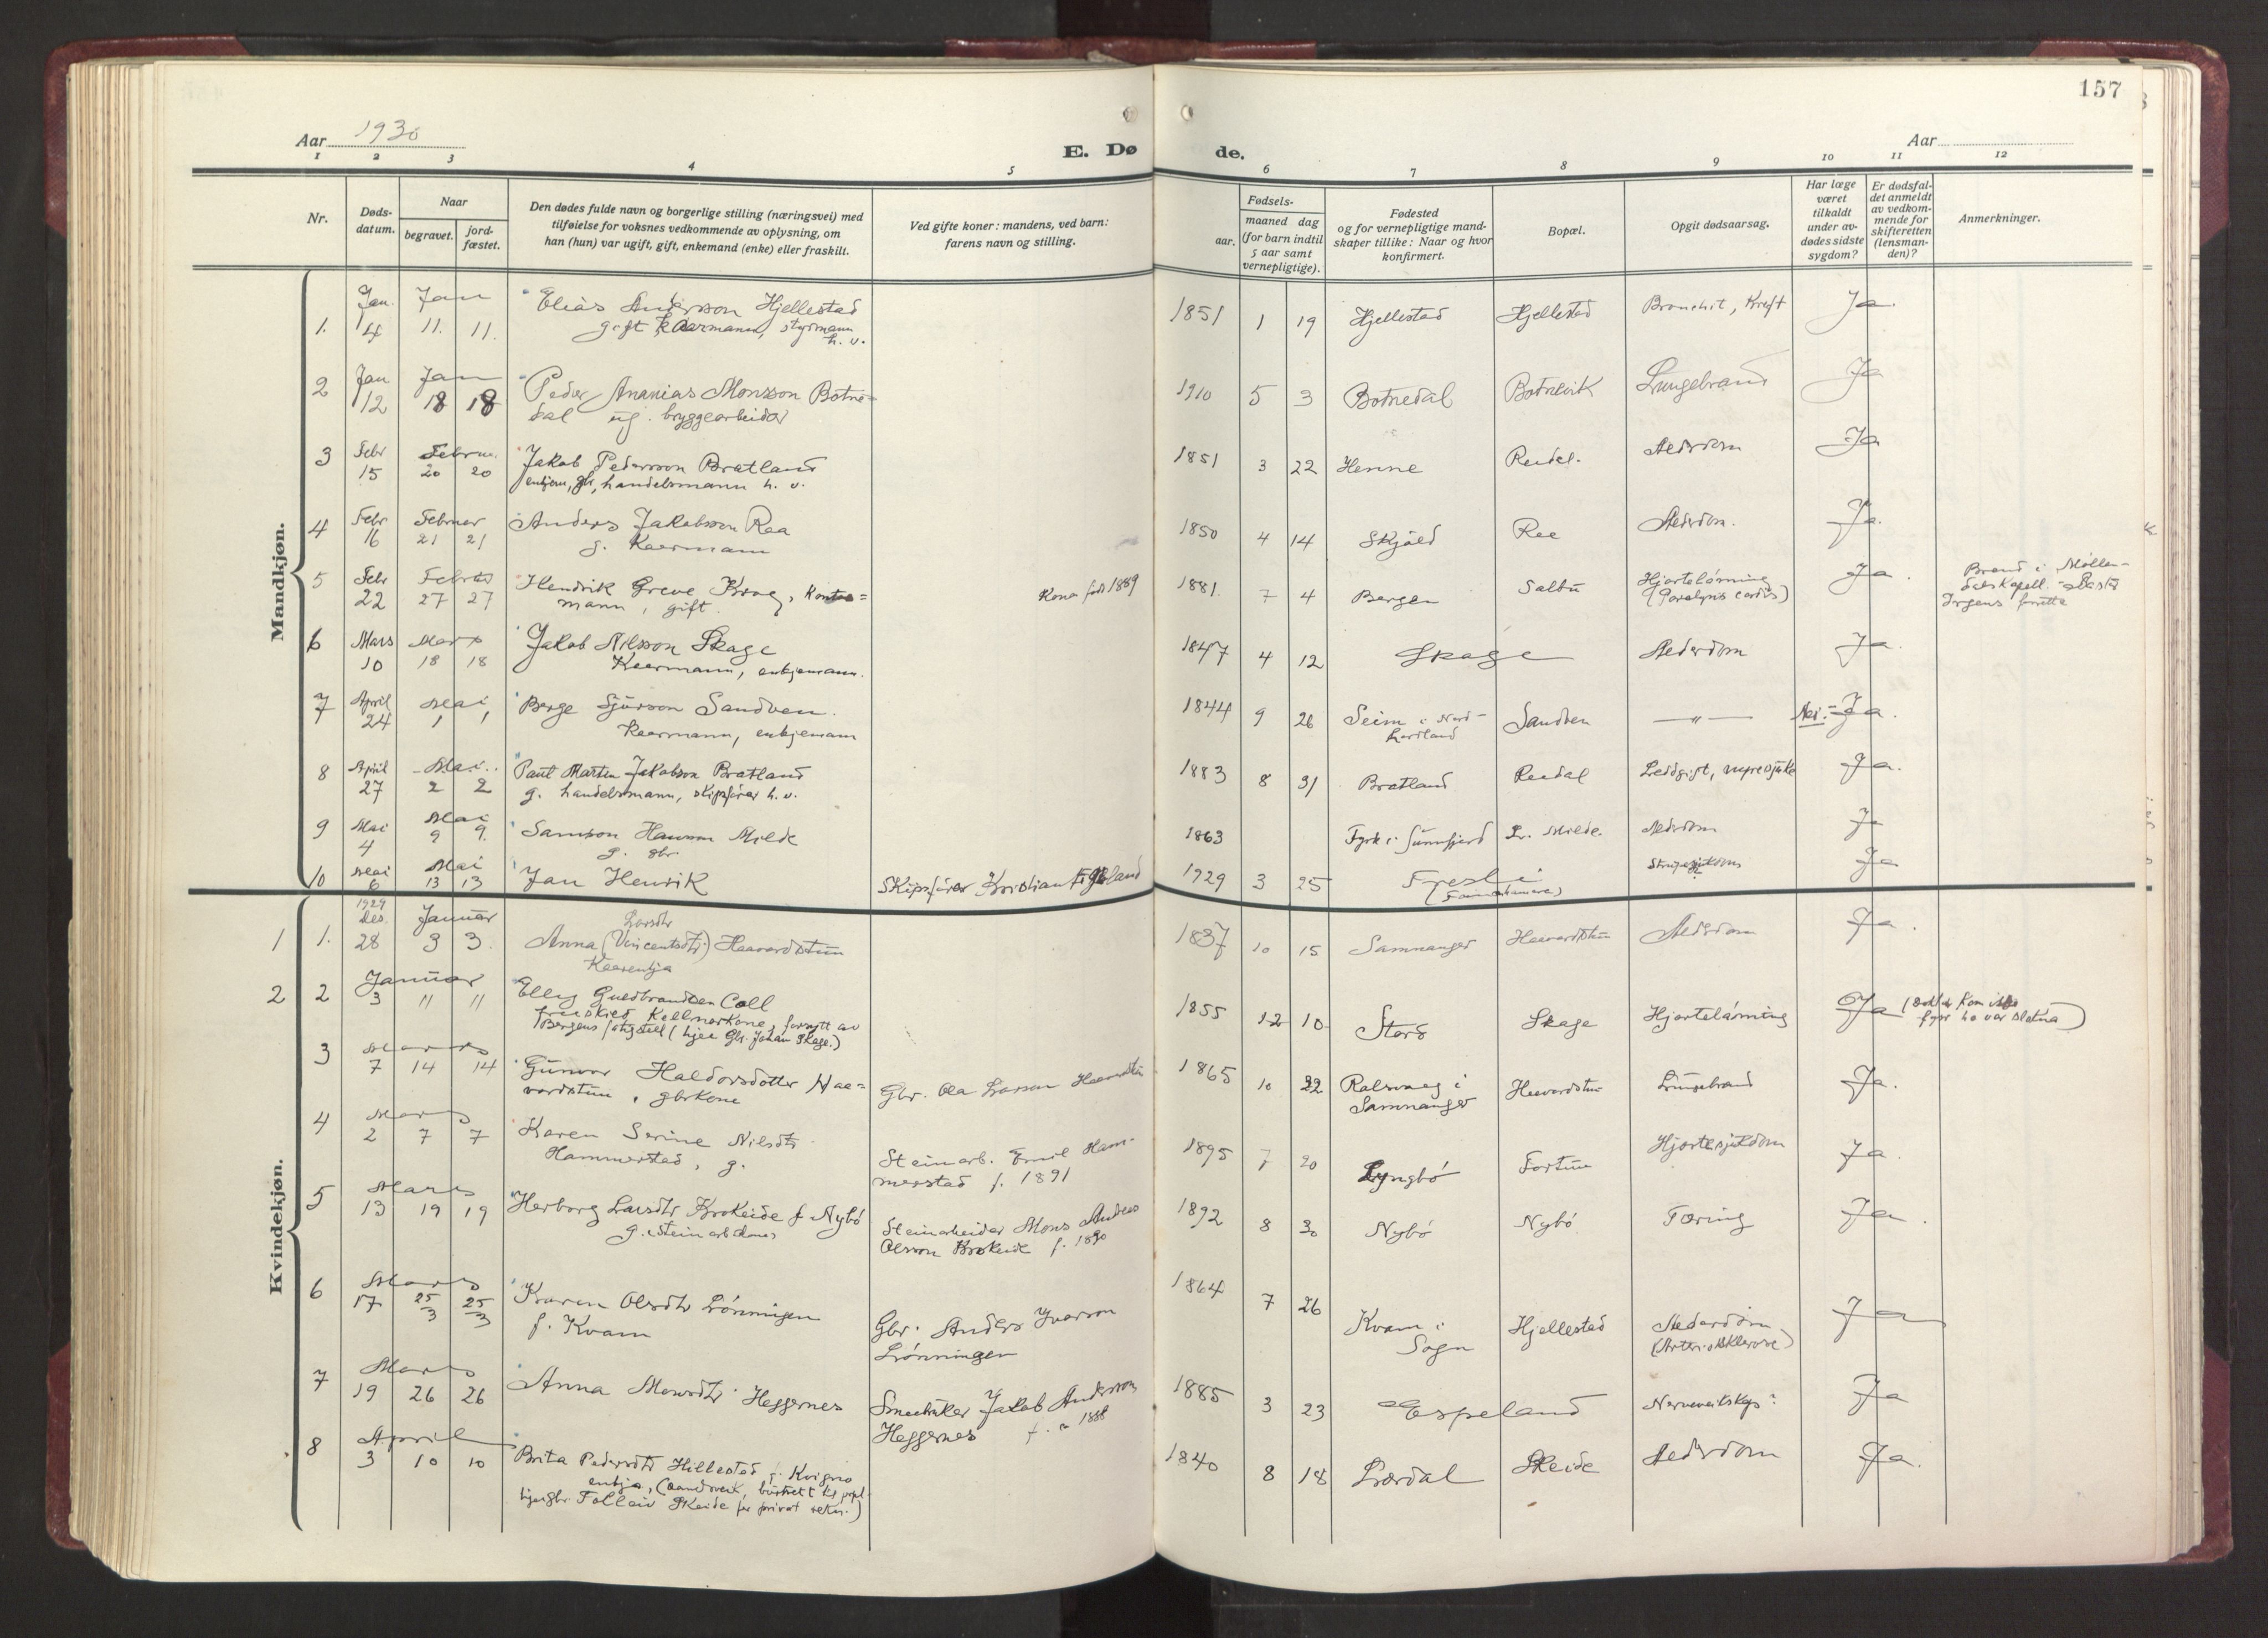 157
Aar 1930
E. Dø
de.
Aar
1 2 3 4 5 6 7 8 9 10 11 12
Nr.
Døds-
datum.
Naar
begravet.
jord-
fæstet.
Den dødes fulde navn og borgerlige stilling (næringsvei) med
tilføielse for voksnes vedkommende av oplysning, om
han (hun) var ugift, gift, enkemand (enke) eller fraskilt.
Ved gifte koner: mandens, ved barn:
farens navn og stilling.
Fødsels-
aar.
maaned dag
(for barn indtil
5 aar samt
vernepligtige).
Fødested
og for vernepligtige mand-
skaper tillike: Naar og hvor
konfirmert.
Bopæl.
Opgit dødsaarsag.
Har læge
været
tilkaldt
under av-
dødes sidste
sygdom?
Er dødsfal-
det anmeldt
av vedkom-
mende for
skifteretten
(lensman-
den)?
Anmerkninger.
Mandkjøn.
1. Jan. 4 Jan 11. 11. Elias Andersson Hjellestad 1851 1 19 Hjellestad Hjellestad Bronchit, Kreft Ja
gift kaarmann, styrmann
h. v.
2 Jan 12 Jan 18 18 Peder Ananias Monsson Botne= 1910 5 3 Botnedal Botnevik Lungebrand Ja
dal ug. bryggearbeider
3 Febr 15 Februa. 20 20 Jakob Pedersson Bratland 1851 3 22 Henne Reidal. Alderdom Ja
enkjem, gbr, handelsmann h. v.
4 Febr 16 Februar 21 21 Anders Jakobsson Raa 1850 4 14 Skjold Raa Alderdom. Ja.
g. Kaarmann
5 Febr 22 27 27 Hendrik Greve Krag, 1881. 7 4 Bergen Hjartelamning Ja.
mann, gift. Kona født 1889
(Paralysis cordis)
Brand i Møllen-
dals Kapell.
Irgens
6 Mars 10 Mars 18 18 Jakob Nilsson Skage 1847 4 12 Skage Alderdom Ja.
Kaarmann, enkjemann.
7 April 24 Mai 1 1 Berge Sjursson Sandven. 1844 9 26 Seim i Nord- Sandven —"— Nei.= Ja.
Kaarmann, enkjemann
hordland
8 April 27 Mai. 2 2 Paul Martin Jakobson Bratland 1883 8 31 Bratland Reidal Ja.
g. handelsmann, skipsførar h. v.
9 Mai 4 Mai 9 9. Samson Hansson Milde 1863 i Sunnfjord Milde. Alderdom Ja
g. gbr.
10 Mai 6 Mai 13 13 Jan Henrik Skipsførar Kristian 1929 3 25 Ja
Kvindekjøn.
1 1. 1929 Des. 28 Januar 3 3. Anna (Vincentsdtr.) Haavardstun 1837 10 15 Samnanger Haavardstun Alderdom Ja.
Larsdtr
Kaarenkja
2 2 Januar 3 11 11 Elly Guldbrandsen Coll 1855 12 10 Stord Skage Hjartelamning Ja
fraskild Kellnarkone, forsytt av
Bergens fatigstell (hjaa Gbr. Johan Skage.)
3 Mars 7 14 14 Gunvor Haldorsdotter Haa= Gbr. Ola Larsson 1865 10 22 i Haavardstun Lungebrand Ja.
vardstun, gbrkone
Samnanger
4 Mars 2 7 7 Karen Serine Nilsdtr Steinarb. Emil Ham- 1895 7 20 Lyngbø Fortun Hjartesjukdom Ja.
Hammerstad, g. merstad f. 1891
5 Mars 13 19 19 Herborg Larsdtr Krokeide f. Nybø Steinarbeider Mons Andreas 1892 8 30 Nybø Nybø Tæring Ja.
Olsson Krokeide f. 1890
6 Mars 17 25/3 25/3 Karen Olsdtr Lønningen Gbr. Anders Ivarson 1864 7 26 Kvam i Hjellestad Alderdom Ja
f. Kvam Lønningen Sogn (Arteriosklerose)
7 Mars 19 26 26 Anna Monsdtr. Heggernes Jakob Andersson 1885 3 23 Espeland Ja
Heggernes f. 1888
8 April 3 10 10 Brita Pedersdtr Hillestad 1840 8 18 Lærdal Skeide Alderdom Ja.
enkja,
Skeide for privat